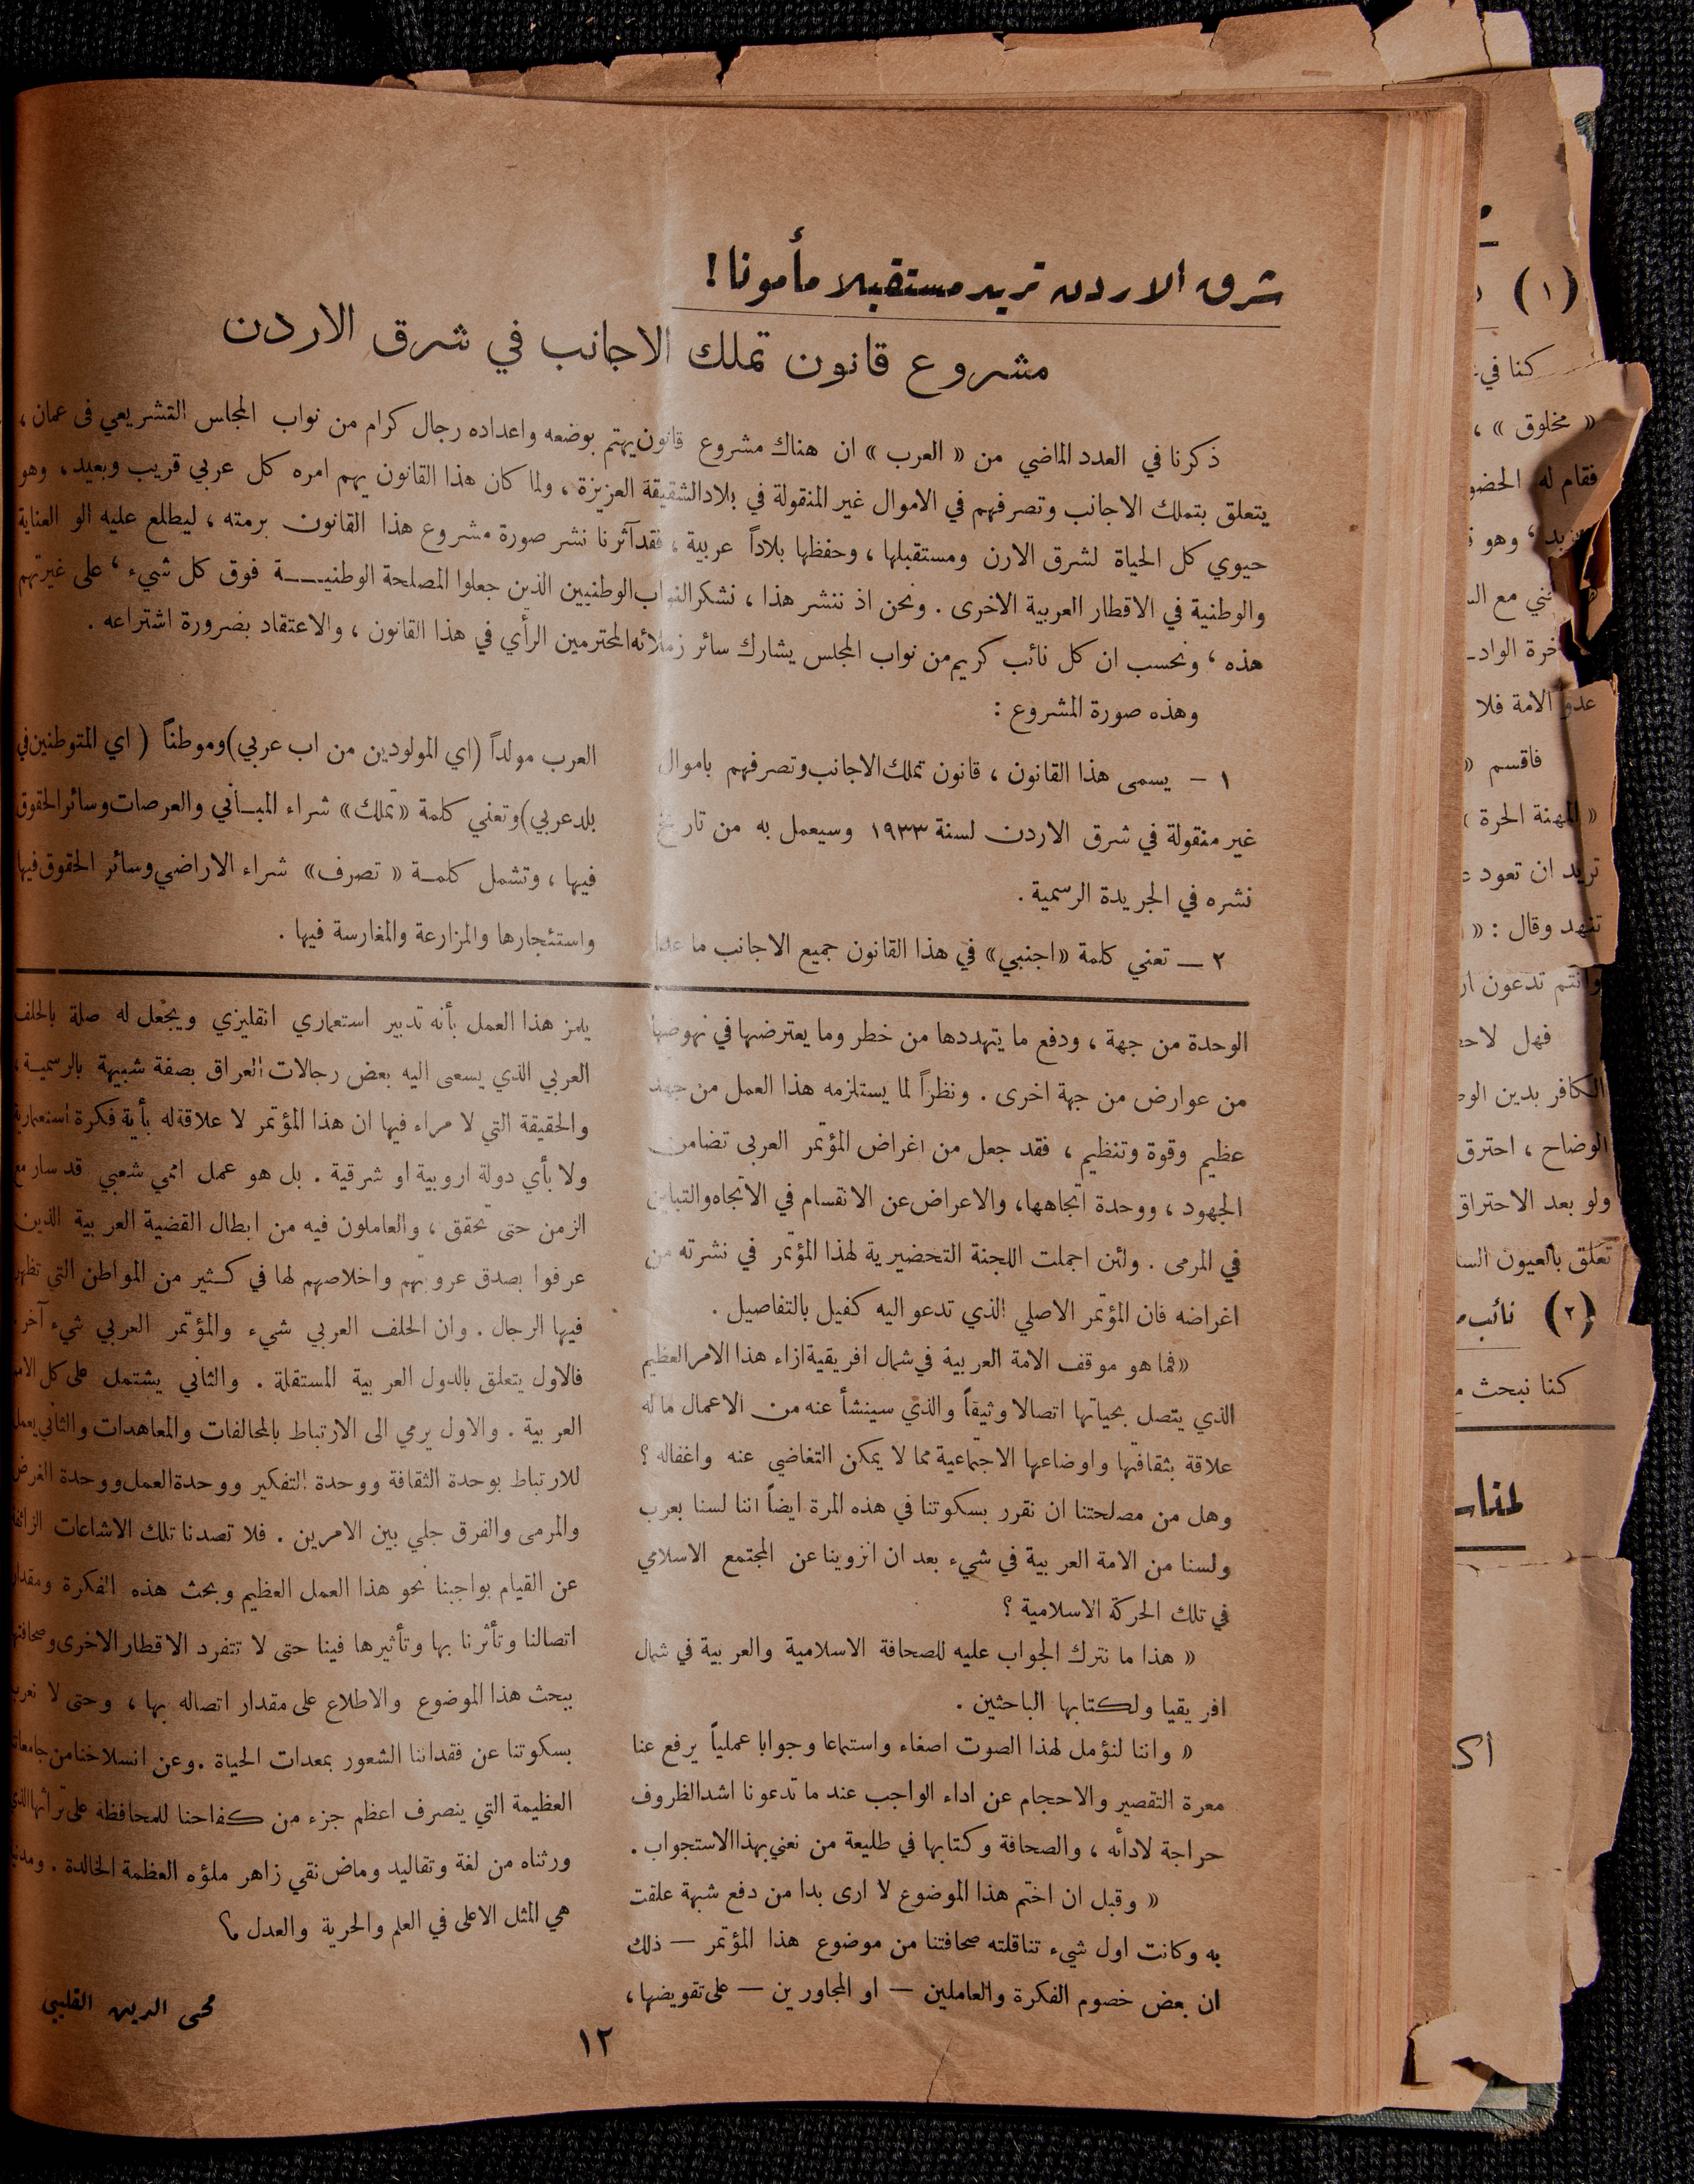 شرق الاردن تريد مستقبلا مأمونا !
مشروع قانون تملك الاجانب في شرق الاردن
ذكرنا في العدد الماضي من « العرب » ان هناك مشروع قانون يهتم بوضعه واعداده رجال كرام من نواب المجلس التشريعي فى عمان ،
يتعلق بتملك الاجانب وتصرفهم في الاموال غير المنقولة في بلاد الشقيقة العزيزة ، ولما كان هذا القانون يهم امره كل عربي قريب وبعيد ، وهو
حيوي كل الحياة لشرق الارن ومستقبلها ، وحفظها بلاداً عربية ، فقد آثرنا نشر صورة مشروع هذا القانون برمته ، ليطلع عليه الو العناية
والوطنية في الاقطار العربية الاخرى . ونحن اذ ننشر هذا ، نشكر النواب الوطنيين الذين جعلوا المصلحة الوطنيـــة فوق كل شيء ، على غيرتهم
هذه ، ونحسب ان كل نائب كريم من نواب المجلس يشارك سائر زملائه المحترمين الرأي في هذا القانون ، والاعتقاد بضرورة اشتراعه .
وهذه صورة المشروع :
١ - يسمى هذا القانون ، قانون تملك الاجانب وتصرفهم باموال
غير منقولة في شرق الاردن لسنة ١٩٣٣ وسيعمل به من تاريخ
نشره في الجريدة الرسمية .
٢ — تعني كلمة «اجنبي» في هذا القانون جميع الاجانب ما عدا
العرب مولداً (اي المولودين من اب عربي) وموطناً ( اي المتوطنين في
بلد عربي) وتعني كلمة «تملك» شراء المبـاني والعرصات وسائر الحقوق
فيها ، وتشمل كلمـة « تصرف» شراء الاراضي وسائر الحقوق فيها
واستئجارها والمزارعة والمغارسة فيها .
الوحدة من جهة ، ودفع ما يتهددها من خطر وما يعترضها في نهوضها
من عوارض من جهة اخرى . ونظراً لما يستلزمه هذا العمل من جهد
عظيم وقوة وتنظيم ، فقد جعل من اغراض المؤتمر العربى تضامن
الجهود ، ووحدة اتجاهها، والاعراض عن الانقسام في الاتجاه والتباين
في المرمى . ولئن اجملت اللجنة التحضيرية لهذا المؤتمر في نشرته من
اغراضه فان المؤتمر الاصلي الذي تدعو اليه كفيل بالتفاصيل .
«فما هو موقف الامة العربية في شمال افريقية ازاء هذا الامر العظيم
الذي يتصل بحياتها اتصالا وثيقاً والذي سينشأ عنه من الاعمال ما له
علاقة بثقافتها واوضاعها الاجتماعية مما لا يمكن التغاضي عنه واغفاله ؟
وهل من مصلحتنا ان نقرر بسكوتنا في هذه المرة ايضاً اننا لسنا بعرب
ولسنا من الامة العربية في شيء بعد ان انزوينا عن المجتمع الاسلامي
في تلك الحركة الاسلامية ؟
« هذا ما نترك الجواب عليه للصحافة الاسلامية والعربية في شمال
افريقيا ولكتابها الباحثين .
« واننا لنؤمل لهذا الصوت اصغاء واستماعا وجوابا عملياً يرفع عنا
معرة التقصير والاحجام عن اداء الواجب عند ما تدعونا اشد الظروف
حراجة لادائه ، والصحافة وكتابها في طليعة من نعني بهذا الاستجواب .
« وقبل ان اختم هذا الموضوع لا ارى بدا من دفع شبهة علقت
به وكانت اول شيء تناقلته صحافتنا من موضوع هذا المؤتمر — ذلك
ان بعض خصوم الفكرة والعاملين — او المجاورين — على تقويضها ،
يلمز هذا العمل بأنه تدبير استعماري انقليزي ويجعل له صلة بالحلف
العربي الذي يسعى اليه بعض رجالات العراق بصفة شبيهة بالرسميـة ،
والحقيقة التي لا مراء فيها ان هذا المؤتمر لا علاقة له بأية فكرة استعمارية
ولا بأي دولة اروبية او شرقية . بل هو عمل اممي شعبي قد سار مع
الزمن حتى تحقق ، والعاملون فيه من ابطال القضية العربية الذين
عرفوا بصدق عروبتهم واخلاصهم لها في كـثير من المواطن التي تظهر
فيها الرجال . وان الحلف العربي شيء والمؤتمر العربي شيء آخر .
فالاول يتعلق بالدول العربية المستقلة . والثاني يشتمل على كل الامم
العربية . والاول يرمي الى الارتباط بالمحالفات والمعاهدات والثاني يعمل
للارتباط بوحدة الثقافة ووحدة التفكير ووحدة العمل ووحدة الغرض
والمرمى والفرق جلي بين الامرين . فلا تصدنا تلك الاشاعات الزائفة
عن القيام بواجبنا نحو هذا العمل العظيم وبحث هذه الفكرة ومقدار
اتصالنا وتأثرنا بها وتأثيرها فينا حتى لا تتفرد الاقطار الاخرى وصحافتها
ببحث هذا الموضوع والاطلاع على مقدار اتصاله بها ، وحتى لا نعرب
بسكوتنا عن فقداننا الشعور بمعدات الحياة . وعن انسلاخنا من جامعاتنا
العظيمة التي ينصرف اعظم جزء من كفاحنا للمحافظة على تراثها الذي
ورثناه من لغة وتقاليد وماض نقي زاهر ملؤه العظمة الخالدة .
هي المثل الاعلى في العلم والحرية والعدل
محى الدين القليبى
١٢
(١)
كنا في
« مخلوق » ،
فقام له الحضو
وهو
ني مع
خرة الواد
عدو الامة فلا
فاقسم «
« المهنة الحرة »
تريد ان تعود
تنهد وقال : «
وانتم تدعون
فهل
الكافر بدين
الوضاح ، احترق
ولو بعد الاحتراق
تعلق بالعيون
(٢) نائب
كنا نبحث